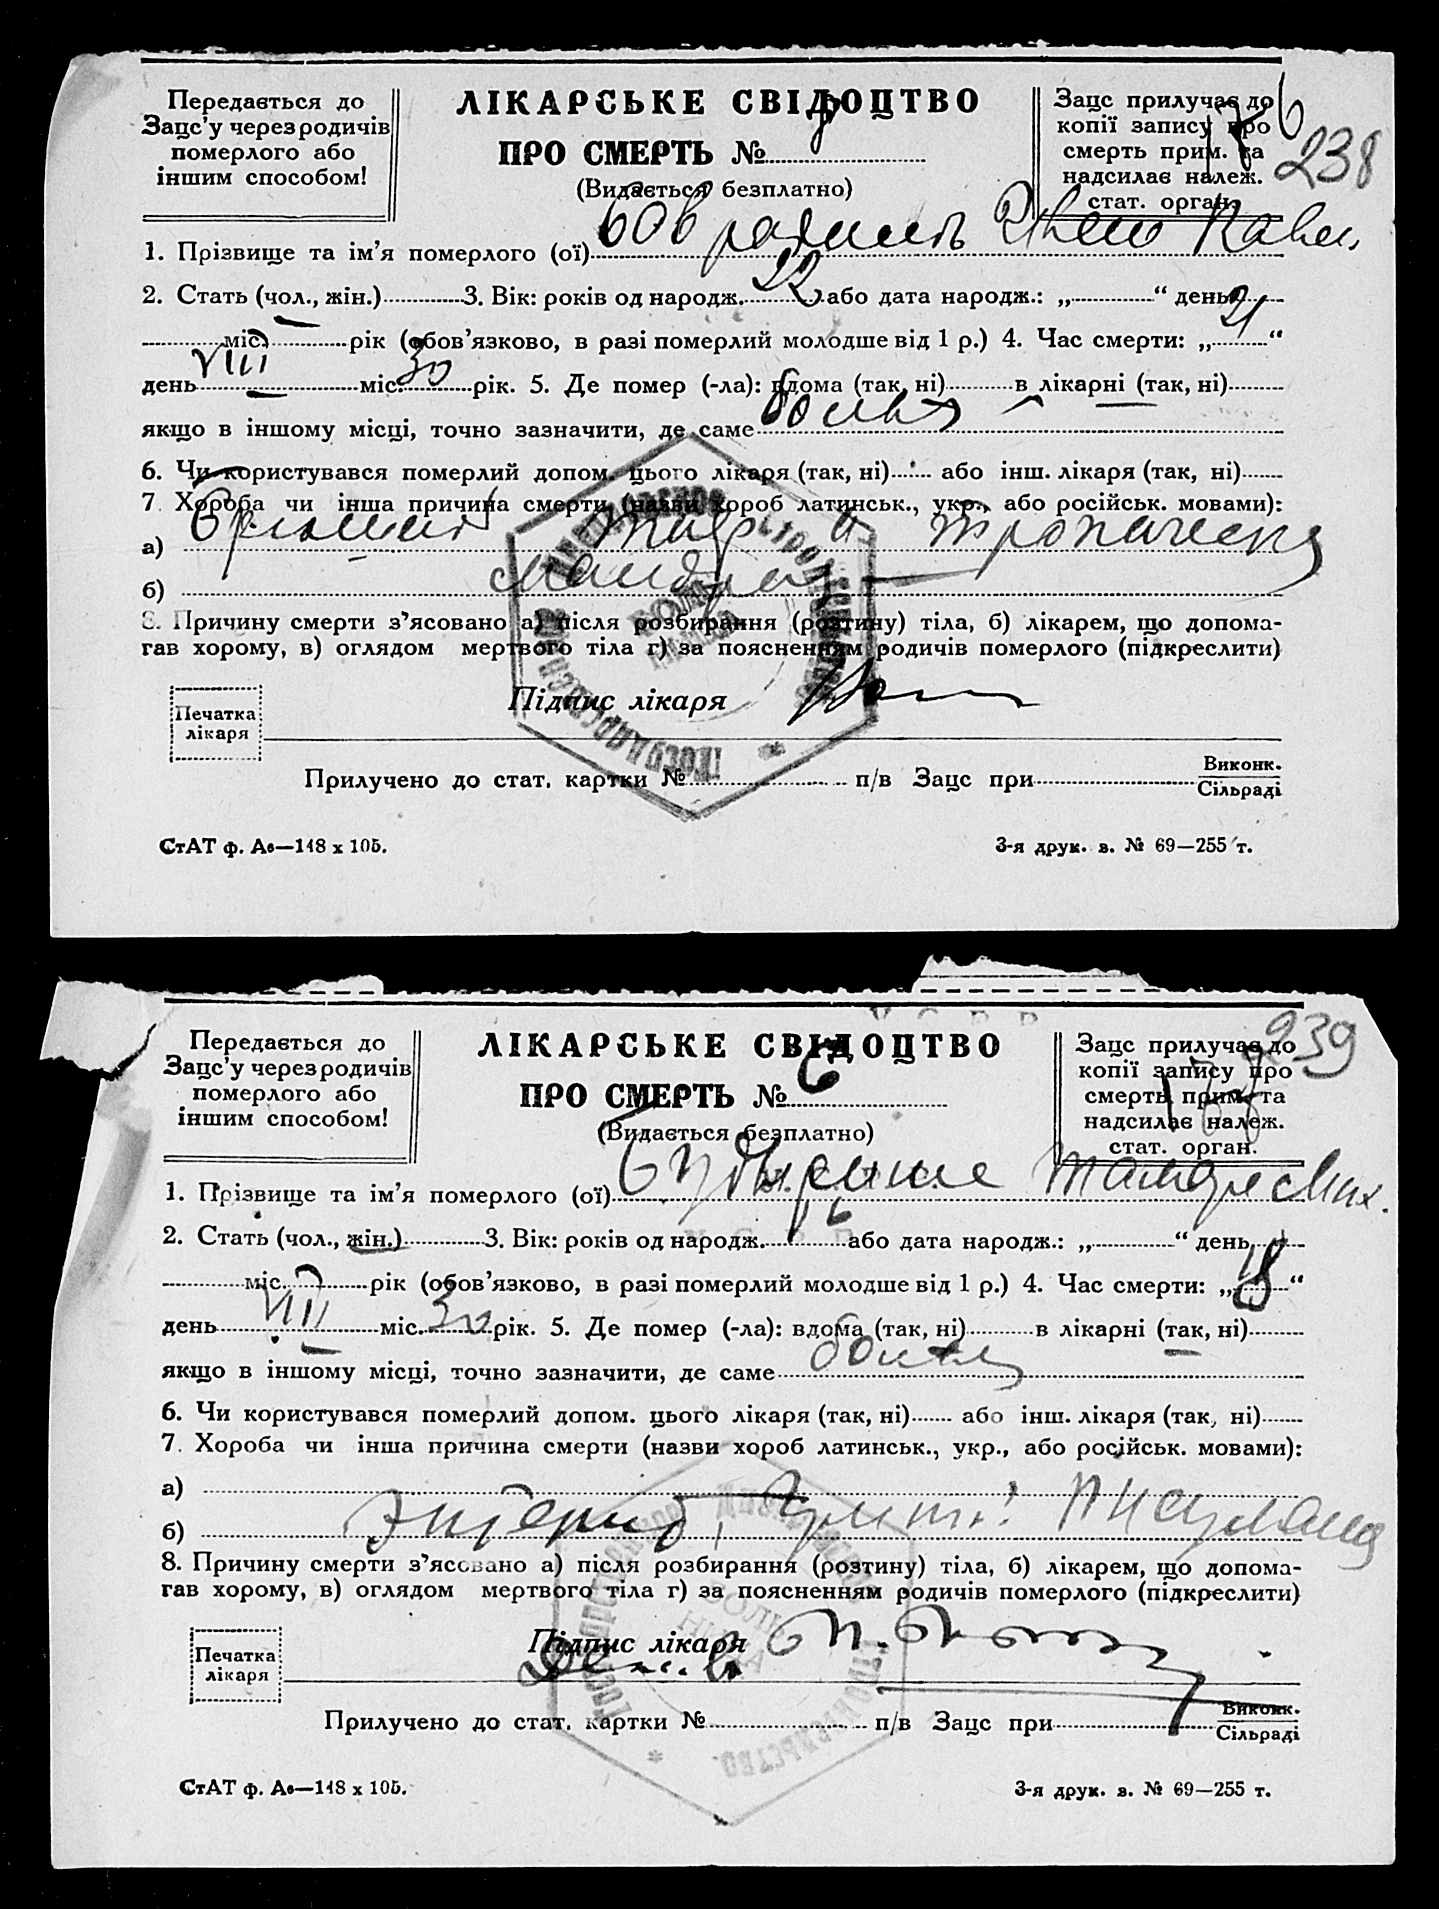 Передається до
Зацс'у через родичів
померлого або
іншим способом!
ЛІКАРСЬКЕ СВІДОЦТВО
ПРО СМЕРТЬ №
(Видається безплатно)
Зацс прилучає до
копії запису про
смерть прим. та
надсилає належ.
стат. орган.
176
238
1. Прізвище та ім'я померлого (ої)
2. Стать (чол., жін.) 3. Вік: років од народж. 22 або дата народж.: „ “ день
міс. рік (обов'язково, в разі померлий молодше від 1 р.) 4. Час смерти: „21“
день VIII міс. 30 рік. 5. Де помер (-ла): вдома (так, ні) в лікарні (так, ні)
якщо в іншому місці, точно зазначити, де саме
6. Чи користувався померлий допом. цього лікаря (так, ні) або інш. лікаря (так, ні)
7. Хороба чи інша причина смерти (назви хороб латинськ., укр., або російськ. мовами):
а) Брюшной тиф и тропическая
б) малярия
8. Причину смерти з'ясовано а) після розбирання (розтину) тіла, б) лікарем, що допома-
гав хорому, в) оглядом мертвого тіла г) за поясненням родичів померлого (підкреслити)
Печатка
лікаря
Підпис лікаря
Прилучено до стат. картки № п/в Зацс при Виконк.
Сільраді
СтАТ ф. Ав—148 х 105.
3-я друк. з. № 69—255 т.
Передається до
Зацс'у через родичів
померлого або
іншим способом!
ЛІКАРСЬКЕ СВІДОЦТВО
ПРО СМЕРТЬ № 6
(Видається безплатно)
Зацс прилучає до
копії запису про
смерть прим. та
надсилає належ.
стат. орган.
239
1. Прізвище та ім'я померлого (ої)
2. Стать (чол., жін.) 3. Вік: років од народж. 16 або дата народж.: „ “ день
міс. рік (обов'язково, в разі померлий молодше від 1 р.) 4. Час смерти: „18“
день VIII міс. 30 рік. 5. Де помер (-ла): вдома (так, ні) в лікарні (так, ні)
якщо в іншому місці, точно зазначити, де саме
6. Чи користувався померлий допом. цього лікаря (так, ні) або інш. лікаря (так, ні)
7. Хороба чи інша причина смерти (назви хороб латинськ., укр., або російськ. мовами):
а)
б) Энтерит,
8. Причину смерти з'ясовано а) після розбирання (розтину) тіла, б) лікарем, що допома-
гав хорому, в) оглядом мертвого тіла г) за поясненням родичів померлого (підкреслити)
Печатка
лікаря
Підпис лікаря
Прилучено до стат. картки № п/в Зацс при Виконк.
Сільраді
СтАТ ф. Ав—148 х 105.
3-я друк. з. № 69—255 т.